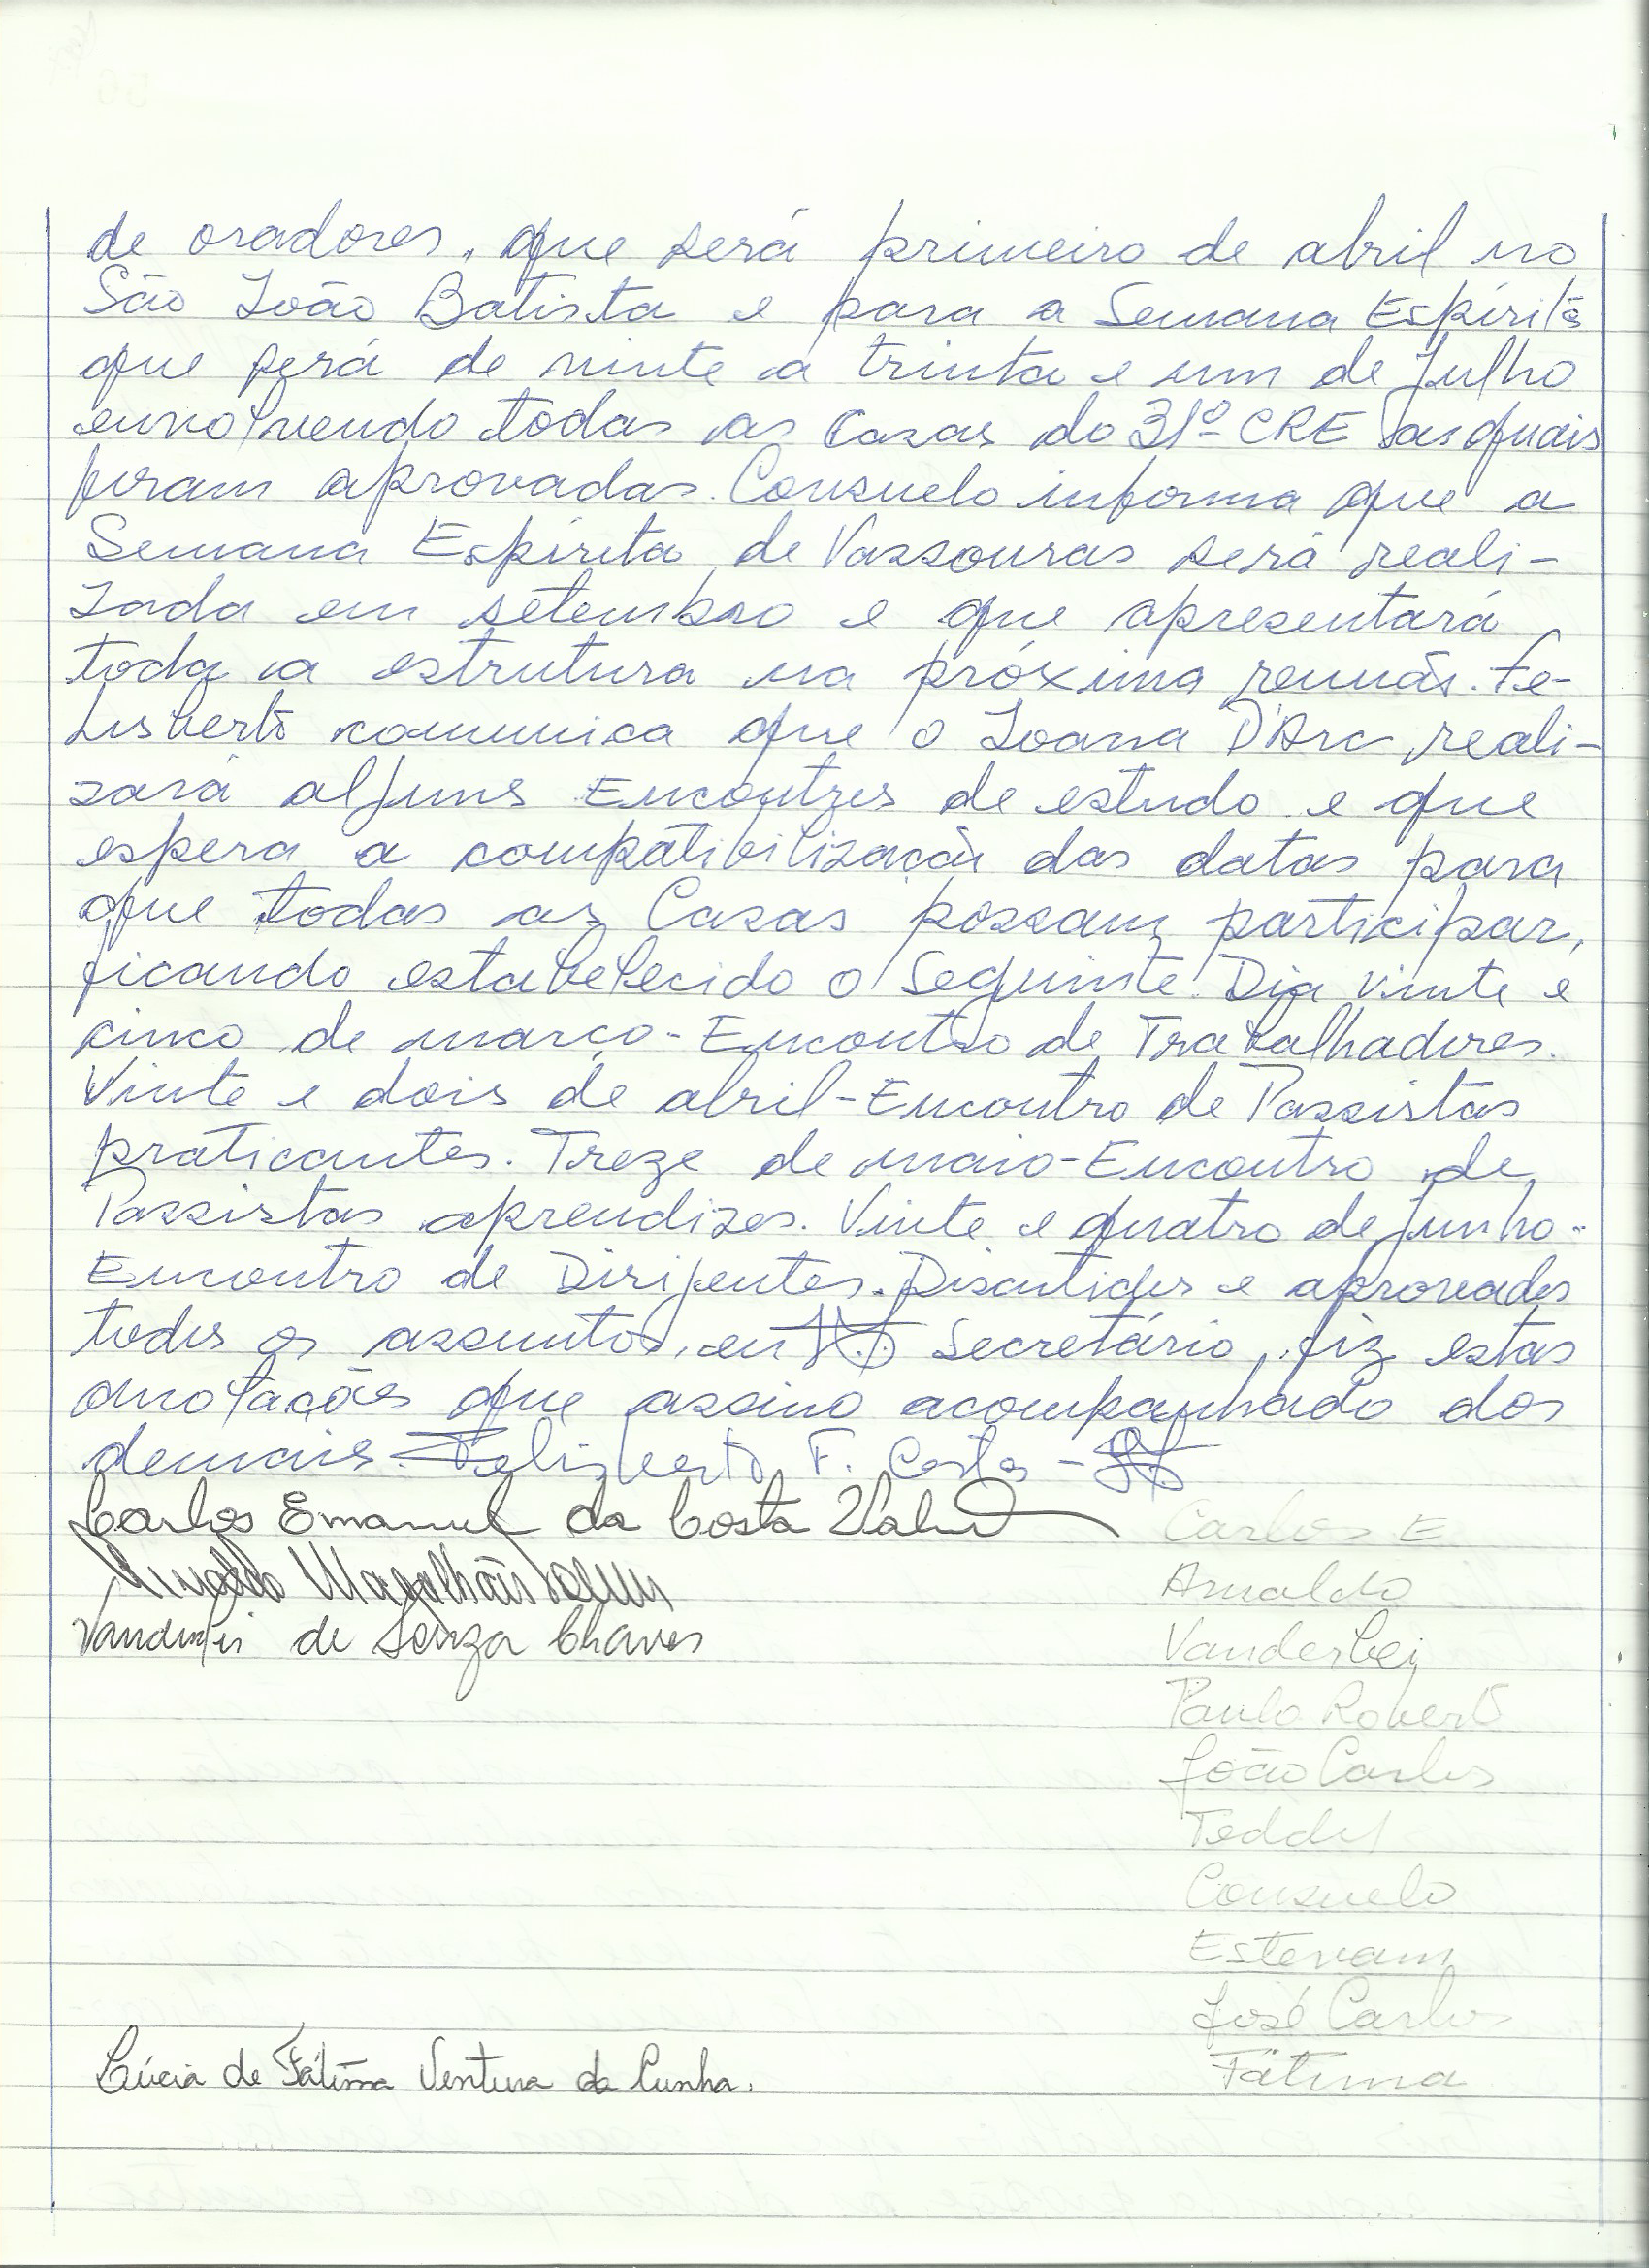 de oradores, que será primeiro de abril no
São João Batista e para a Semana Espírita
que será de vinte a trinta e um de Julho
envolvendo todas as Casas do 31º CRE as quais
foram aprovadas. Consuelo informa que a
Semana Espírita de Vassouras será reali-
zada em setembro e que apresentará
toda a estrutura na próxima reunião. Fe-
lisberto comunica que o Joana D'Arc reali-
zará alguns Encontros de estudo e que
espera a compatibilização das datas para
que todas as Casas possam participar,
ficando estabelecido o Seguinte: Dia vinte e
cinco de março - Encontro de Trabalhadores.
Vinte e dois de abril - Encontro de Passistas
praticantes. Treze de maio - Encontro de
Passistas aprendizes. Vinte e quatro de junho -
Encontro de Dirigentes. Discutidos e aprovados
todos os assuntos, eu Secretário, fiz estas
anotações que assino acompanhado dos
demais. Felisberto F. Costa -
Carlos Emanuel da Costa
Carlos E
Arnaldo Magalhães
Arnaldo
Vanderlei de Souza Chaves
Vanderlei
Paulo Roberto
João Carlos
Teddy
Consuelo
Estevam
José Carlos
Lúcia de Fátima Ventura da Cunha.
Fátima